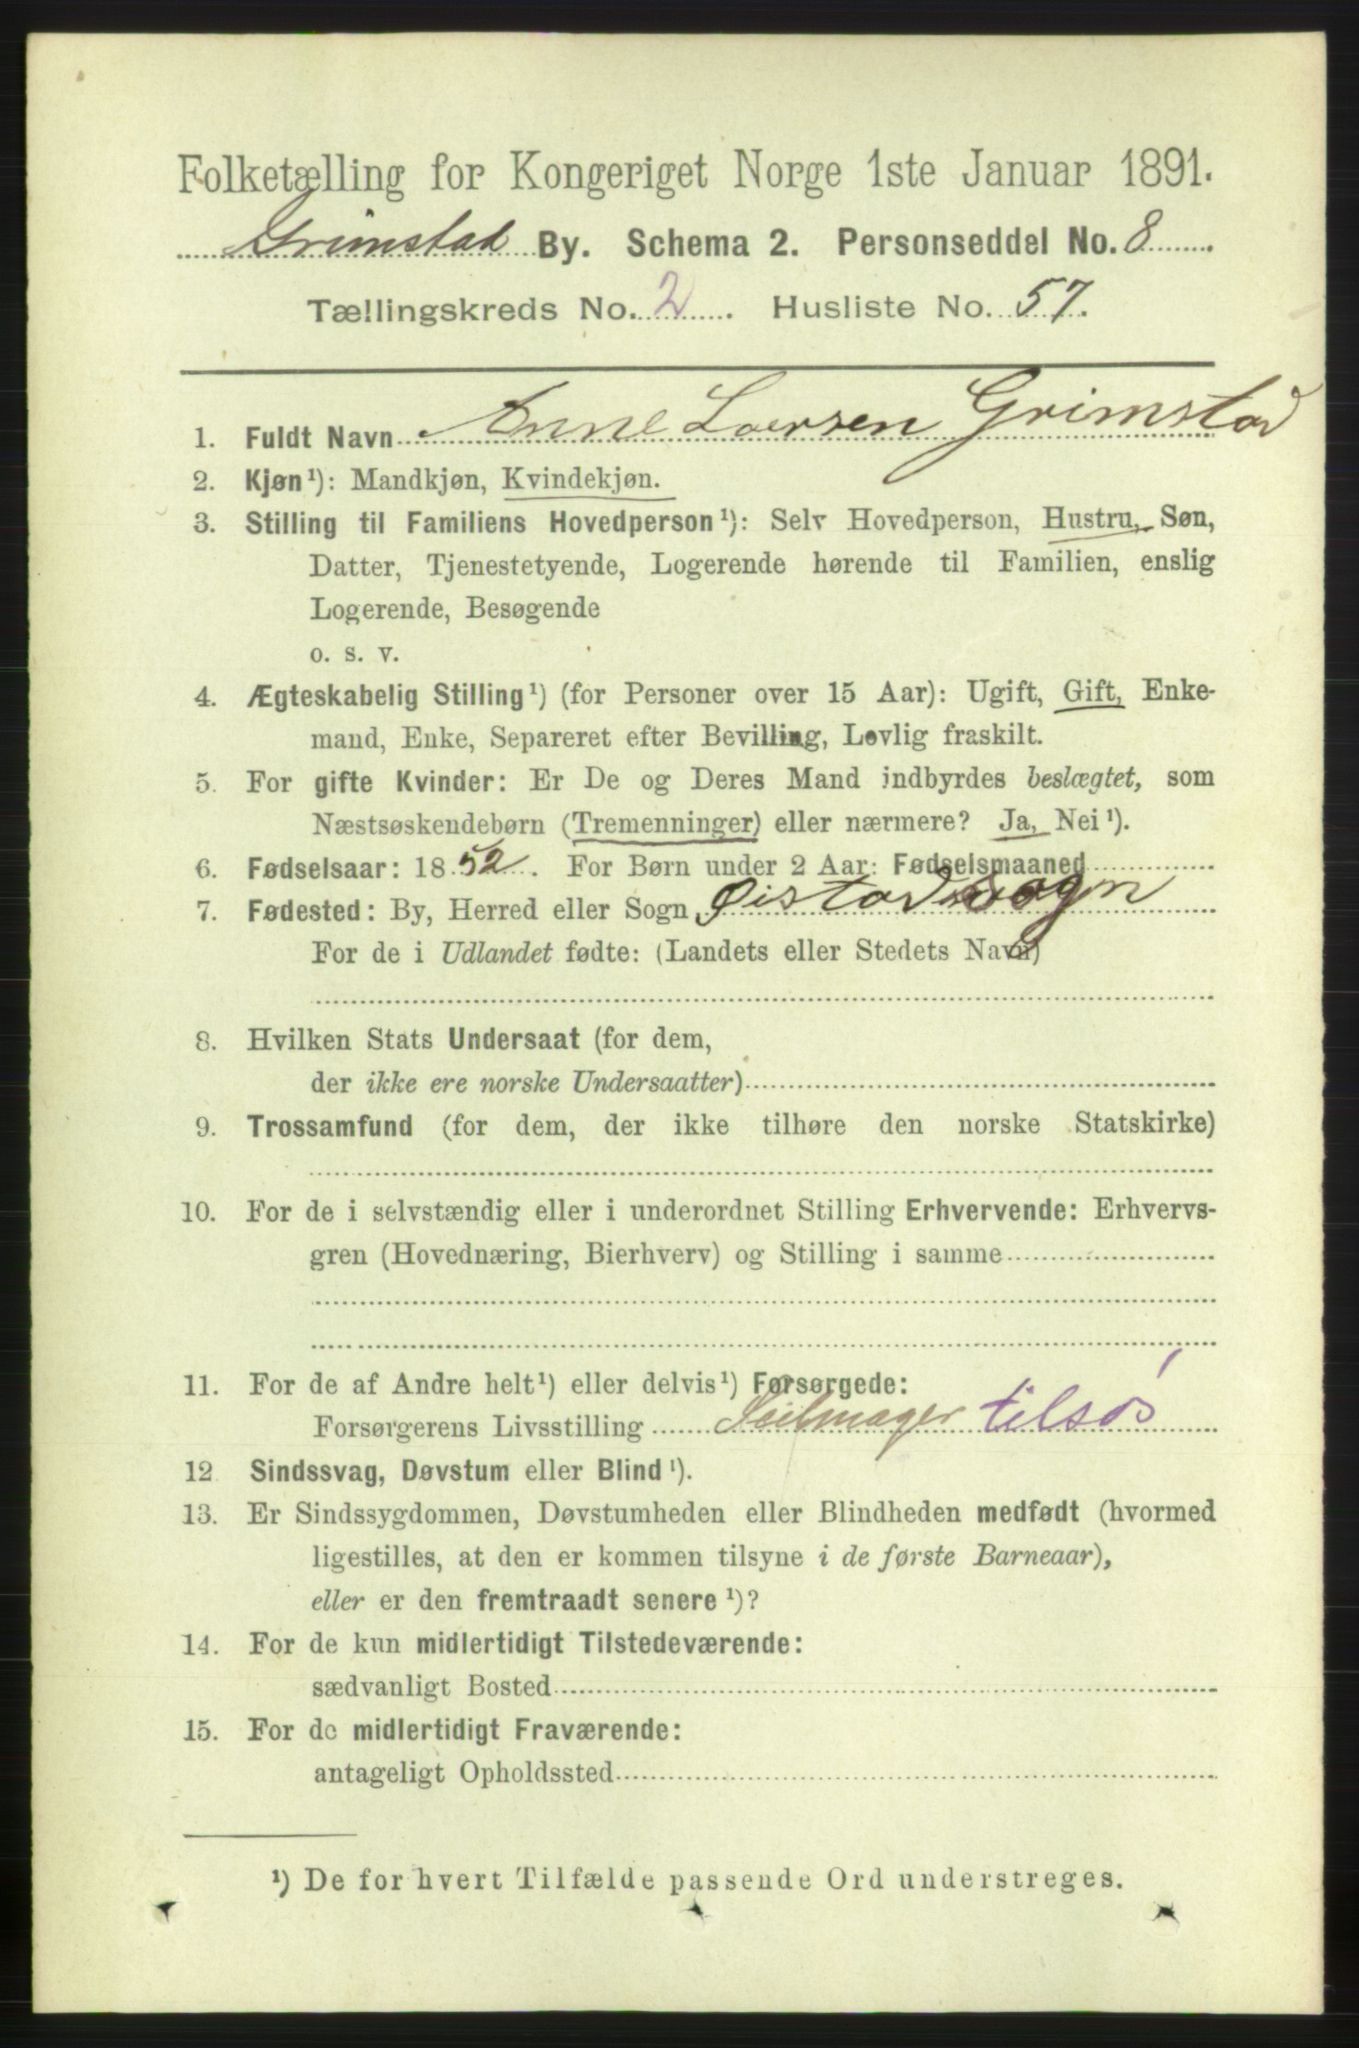 Folketælling for Kongeriget Norge 1ste Januar 1891.
Grimstad By. Schema 2. Personseddel No. 8
Tællingskreds No. 2. Husliste No. 57.
1. Fuldt Navn Anne Larsen Grimstad
2. Kjøn¹): Mandkjøn, Kvindekjøn.
3. Stilling til Familiens Hovedperson¹): Selv Hovedperson, Hustru, Søn,
Datter, Tjenestetyende, Logerende hørende til Familien, enslig
Logerende, Besøgende
o. s. v.
4. Ægteskabelig Stilling¹) (for Personer over 15 Aar): Ugift, Gift, Enke-
mand, Enke, Separeret efter Bevilling, Lovlig fraskilt.
5. For gifte Kvinder: Er De og Deres Mand indbyrdes beslægtet, som
Næstsøskendebørn (Tremenninger) eller nærmere? Ja, Nei¹).
6. Fødselsaar: 1852. For Børn under 2 Aar: Fødselsmaaned
7. Fødested: By, Herred eller Sogn Øistad sogn
For de i Udlandet fødte: (Landets eller Stedets Navn)
8. Hvilken Stats Undersaat (for dem,
der ikke ere norske Undersaatter)
9. Trossamfund (for dem, der ikke tilhøre den norske Statskirke)
10. For de i selvstændig eller i underordnet Stilling Erhvervende: Erhvervs-
gren (Hovednæring, Bierhverv) og Stilling i samme
11. For de af Andre helt¹) eller delvis¹) Forsørgede:
Forsørgerens Livsstilling Seilmager tilsøs
12 Sindssvag, Døvstum eller Blind¹).
13. Er Sindssygdommen, Døvstumheden eller Blindheden medfødt (hvormed
ligestilles, at den er kommen tilsyne i de første Barneaar),
eller er den fremtraadt senere¹)?
14. For de kun midlertidigt Tilstedeværende:
sædvanligt Bosted
15. For de midlertidigt Fraværende:
antageligt Opholdssted
¹) De for hvert Tilfælde passende Ord understreges.